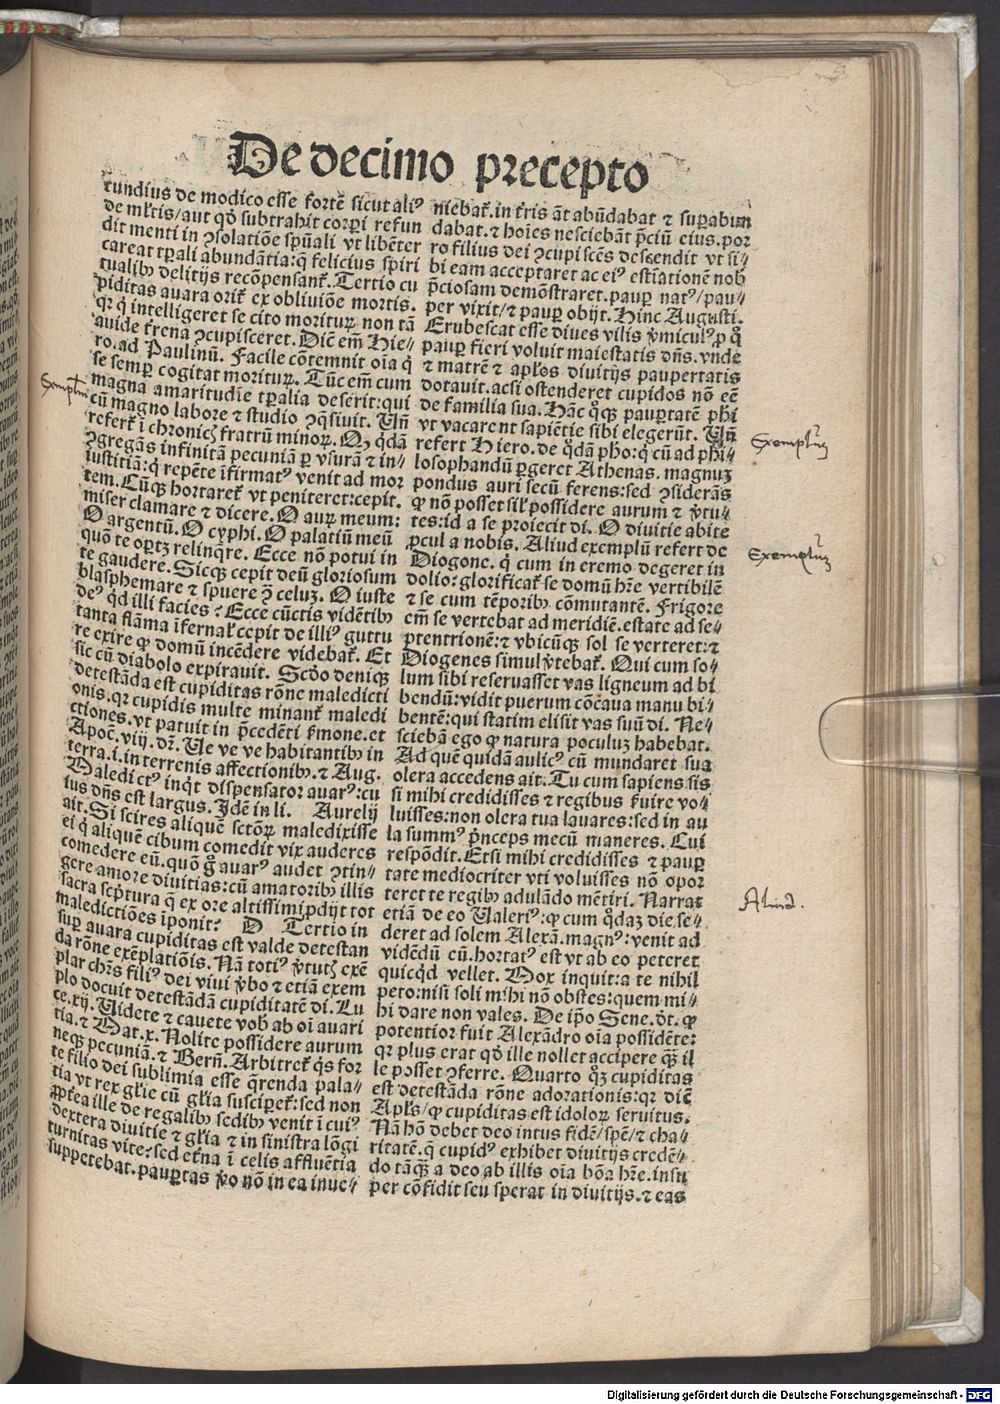 De decimo precepto
cundius de modico esse forte᷒ sicut aliꝰ
de ml̓tis/aut qd̓ subtrahit corꝑi refun
dit menti in ↄsolatiõe spũali vt libẽter
careat tꝑali abundãtia:q̓ felicius spiri
tualibꝫ delitijs recõpensant̓. Tertio cu
piditas auara orit̓ ex obliuiõe mortis.
qꝛ q̓ intelligeret se cito moriturꝫ non tã
auide t̓rena ↄcupisceret. Dic̃ em̃ Hie⸗
ro.ad Paulinũ. Facile cõtemnit oĩa q̓
se semꝑ cogitat moriturꝫ. Tũc em̃ cum
magna amaritudĩe tꝑalia deserit:qui
cũ magno labore ⁊ studio ↄq̓siuit. Vñ
refert̓ ĩ chronicꝭ fratrũ minoꝝ. Qꝫ q̓dã
ↄgregãs infinitã pecuniã ꝑ vsurã ⁊ in⸗
iustitiã:q̓ repẽte ĩfirmatꝰ venit ad mor
tem. Cũqꝫ hortaret̓ vt peniteret:cepit
miser clamare ⁊ dicere. O auꝝ meum:
O argentũ. O cyphi. O palatiũ meũ
quõ te oꝑtꝫ relinq̓re. Ecce nõ potui in
te gaudere. Sicqꝫ cepit deũ gloriosum
blasphemare ⁊ spuere ꝯ̃ celuꝫ. O iuste
deꝰ q̓d illi facies? Ecce cũctis vidẽtibꝫ
tanta flãma ĩfernal̓ cepit de illiꝰ guttu
re exire ꝙ domũ incẽdere videbat̓. Et
sic cũ diabolo expirauit. Scd̓o deniqꝫ
detestãda est cupiditas rõne maledicti
onis.qꝛ cupidis multe minant̓ maledi
ctiones.vt patuit in p̃cedẽti ẜmone.et
Apoc̃.viij.dr̃. Ve ve ve habitantibꝫ in
terra.i.in terrenis affectionibꝫ.⁊ Aug.
Maledictꝰ inq̓t dispensator auarꝰ:cu
ius dñs est largus. Idẽ in li. Aurelij
ait. Si scires aliquẽ sctõꝝ maledixisse
ei q̓ aliquẽ cibum comedit vix auderes
comedere eũ.quõ g̊ auarꝰ audet ↄtin⸗
gere amore diuitias:cũ amatoribꝫ illis
sacra scp̓tura q̓ ex ore altissimi ꝓdijt tot
maledictiões ĩponit? D Tertio in
suꝑ auara cupiditas est valde detestan
da rõne exẽplatiõis. Nã totiꝰ v̓tutꝭ exẽ
plar chr̃s filiꝰ dei viui v̓bo ⁊ etiã exem
plo docuit detestãdã cupiditatẽ di. Lu
ce.xij. Uidete ⁊ cauete vob̃ ab oĩ auari
tia.⁊ Mat.x. Nolite possidere aurum
neqꝫ pecuniã.⁊ Berñ. Arbitret̓ q̓s for
te filio dei sublimia esse q̃renda pala⸗
tia vt rex gl̓ie cũ gl̓ia suscipet̓:sed non
ꝓpt̓ea ille de regalibꝫ sedibꝫ venit ĩ cuiꝰ
dextera diuitie ⁊ gl̓ia ⁊ in sinistra lõgi
turnitas vite:sed et̓na ĩ celis affluẽtia
suppetebat.pauꝑtas v̓o nõ in ea inue⸗
niebat̓.in t̓ris ãt abũdabat ⁊ suꝑabun
dabat.⁊ hoĩes nesciebãt p̃ciũ eius.por
ro filius dei ↄcupiscẽs descendit vt si⸗
bi eam acceptaret ac eiꝰ estĩationẽ nob̃
p̃ciosam demõstraret.pauꝑ natꝰ/pau⸗
per vixit/⁊ pauꝑ obijt. Hinc Augusti.
Erubescat esse diues vilis v̓miculꝰ.ꝓ q̊
pauꝑ fieri voluit maiestatis dñs.vnde
⁊ matrẽ ⁊ apl̓os diuitijs paupertatis
dotauit.acsi ostenderet cupidos nõ eẽ
de familia sua. Hãc q̊qꝫ pauꝑtatẽ ph̓i
vt vacarent sapiẽtie sibi elegerũt. Vñ
refert Hiero.de q̊dã pho:q̓ cũ ad ph̓i⸗
losophandũ ꝑgeret Athenas. magnuꝫ
pondus auri secũ ferens:sed ↄsiderãs
ꝙ nõ posset sil̓ possidere aurum ⁊ v̓tu⸗
tes:id a se proiecit di. O diuitie abite
ꝓcul a nobis. Aliud exemplũ refert de
Diogone. q̓ cum in eremo degeret in
dolio:glorificat̓ se domũ hr̃e vertibilẽ
⁊ se cum tẽporibꝫ cõmutantẽ. Frigore
em̃ se vertebat ad meridiẽ.estate ad se⸗
ptentrionẽ:⁊ vbicũqꝫ sol se verteret:⁊
Diogenes simul v̓tebat̓. Qui cum so⸗
lum sibi reseruasset vas ligneum ad bi
bendũ:vidit puerum cõcaua manu bi⸗
bentẽ:qui statim elisit vas suũ di. Ne⸗
sciebã ego ꝙ natura poculuꝫ habebat.
Ad quẽ quidã aulicꝰ cũ mundaret sua
olera accedens ait. Tu cum sapiens sis
si mihi credidisses ⁊ regibus ẜuire vo⸗
luisses:non olera tua lauares:sed in au
la summꝰ p̓nceps mecũ maneres. Cui
respõdit. Etsi mihi credidisses ⁊ pauꝑ
tate mediocriter vti voluisses nõ opor
teret te regibꝫ adulãdo mẽtiri. Narrat
etiã de eo Ualeriꝰ:ꝙ cum q̊daꝫ die se⸗
deret ad solem Alexã.magnꝰ:venit ad
vidẽdũ eũ.hortatꝰ est vt ab eo peteret
quicq̓d vellet. Mox inquit:a te nihil
peto:nisi soli mihi nõ obstes:quem mi⸗
hi dare non vales. De ip̃o Sene.d̓t. ꝙ
potentior fuit Alexãdro oĩa possidẽte:
qꝛ plus erat qd̓ ille nollet accipere qꝫ̃ il
le posset ↄferre. Quarto q̊ꝫ cupiditas
est detestãda rõne adorationis:qꝛ dic̃
Apl̓s/ꝙ cupiditas est idoloꝝ seruitus.
Nã hõ debet deo intus fidẽ/spẽ/⁊ cha⸗
ritatẽ.q̃ cupidꝰ exhibet diuitijs credẽ⸗
do tãqꝫ̃ a deo ab illis oĩa bõa hr̃e.insu
per cõfidit seu sperat in diuitijs.⁊ eas
Exemplũ
Exemplũ
Exemplũ
Aliud.
Digitalisierung gefördert durch die Deutsche Forschungsgemeinschaft - DFG